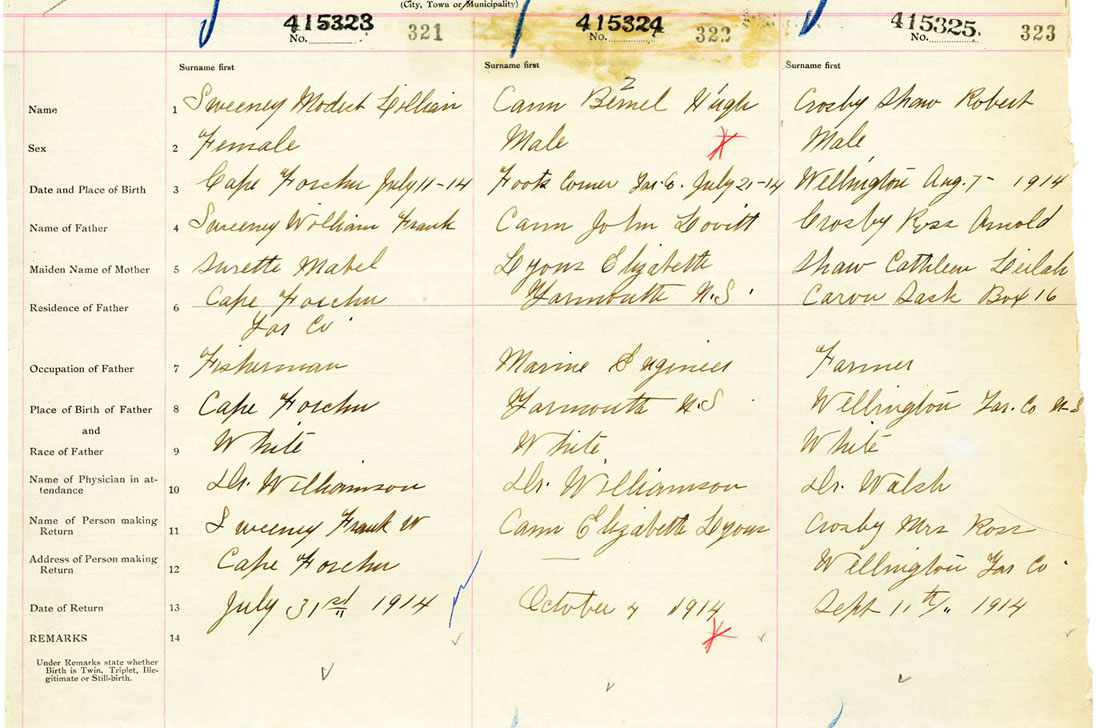 (City, Town or Municipality)
415323 415324 415325.
No. 321 No. 322 No. 323
Surname first Surname first Surname first
Name 1 Sweeney Modest Lillian Cann Hugh Crosby Shaw Robert
Sex 2 Female Male Male
Date and Place of Birth 3 Cape Forchu July 11-14 Foots Corner Yar. Co. July 21-14 Wellington Aug. 7 - 1914
Name of Father 4 Sweeney William Frank Cann John Lovitt Crosby Ross Arnold
Maiden Name of Mother 5 Surette Mabel Lyons Elizabeth Shaw Cathleen Leilah
Residence of Father 6 Cape Forchu Yarmouth N.S. Sask Box 16
Yar Co.
Occupation of Father 7 Fisherman Marine Engineer Farmer
Place of Birth of Father 8 Cape Forchu Yarmouth N.S Wellington Yar. Co N.S
and
Race of Father 9 White White White
Name of Physician in at-
tendance 10 Dr. Williamson Dr. Williamson Dr. Walsh
Name of Person making
Return 11 Sweeney Frank W Cann Elizabeth Lyons Crosby Mrs Ross
Address of Person making
Return 12 Cape Forchu — Wellington Yar Co.
Date of Return 13 July 31st 1914 October 4 1914 Sept 11th 1914
REMARKS 14
Under Remarks state whether
Birth is Twin, Triplet, Ille-
gitimate or Still-birth.